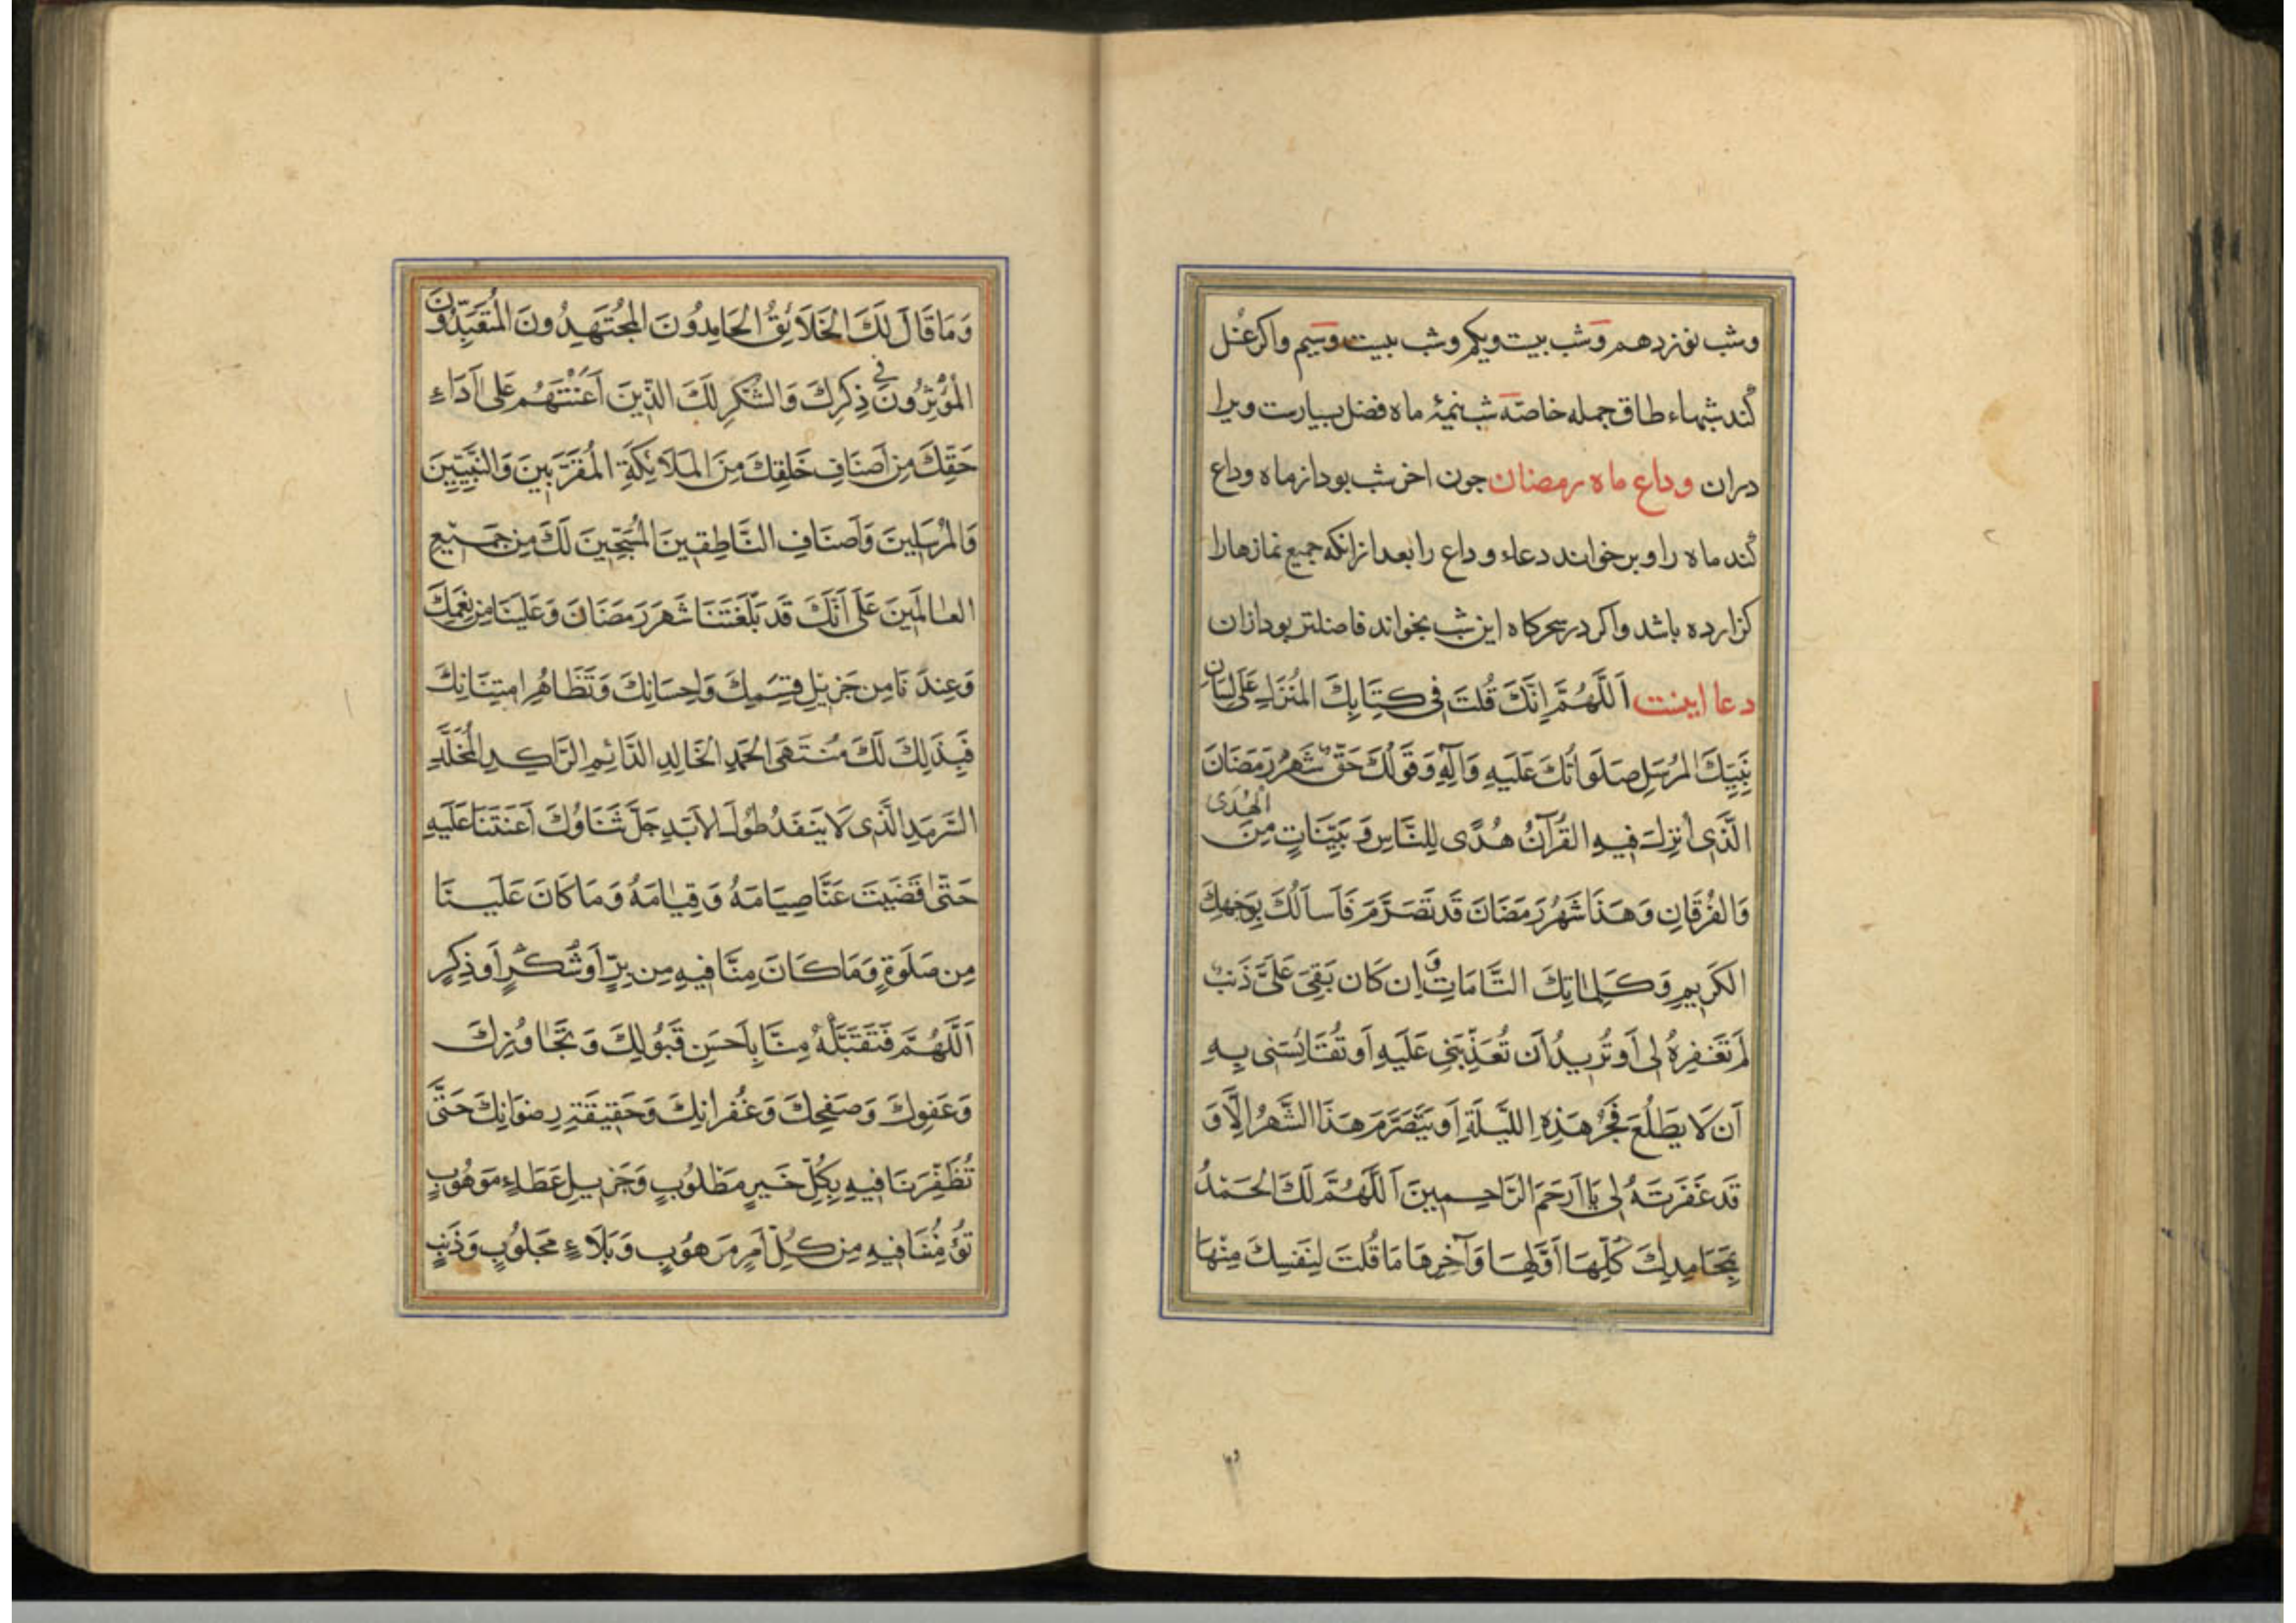 وشب نوزدهم وشب بیت ویکم وشب بیت وسیم واکر غسل
کند شبهاء طاق جمله خاصّه شب نیمۀ ماه فضل بسیارست ویرا
دران وداع ماه رمضان جون اخر شب بود از ماه وداع
کند ماه را وبر خواند دعاء وداع را بعد ازانکه جمیع نمازها را
کزارده باشد واکر در سحرکاه این شب بخواند فاضلتر بود ازان
دعا اینست اَللَّهُمَّ اِنَّكَ قُلتَ فی كِتَابِكَ المُنزَلِ عَلَى لِسَانِ
نَبِيِّكَ المُرسَلِ صَلَوَاتُكَ عَلَيهِ وَآلِهِ وَقَولُكَ حَقٌّ شَهرُ رَمَضَانَ
الَّذِی اُنزِلَ فِيهِ القُرآنُ هُدًى لِلنَّاسِ وَبَيِّنَاتٍ مِنَ الهُدَى
وَالفُرقَانِ وَهَذَا شَهرُ رَمَضَانَ قَد تَصَرَّمَ فَاَسأَلُكَ بِوَجهِكَ
الكَرِيمِ وَكَلِمَاتِكَ التَّامَّاتِ وَ اِن كَان بَقِیَ عَلَیَّ ذَنبٌ
لَم تَغفِرهُ لِی اَو تُرِيدُ اَن تُعَذِّبَنِی عَلَيهِ اَو تُقَايِسَنِی بِهِ
اَن لَا يَطلُعَ فَجرُ هَذِهِ اللَّيلَةِ اَو يَتَصَرَّمَ هَذَا الشَّهرُ اِلَّا وَ
قَد غَفَرتَهُ لِی يَا اَرحَمَ الرَّاحِمِينَ اَللَّهُمَّ لَكَ الحَمدُ
بِمَحَامِدِكَ كُلِّهَا اَوَّلِهَا وَآخِرِهَا مَا قُلتَ لِنَفسِكَ مِنْهَا
وَمَا قَالَ لَكَ الخَلَائِقُ الحَامِدُونَ المُجتَهِدُونَ المُتَعَبِّدُونَ
المُؤْثِرُونَ فی ذِكرِكَ وَالشُّكرِ لَكَ الَّذِينَ اَعَنْتَهُم عَلَى اَدَاءِ
حَقِّكَ مِن اَصنَافِ خَلقِكَ مِنَ المَلَائِكَةِ المُقَرَّبِينَ وَالنَّبِيِّينَ
وَالمُرسَلِينَ وَاَصنَافِ النَّاطِقِينَ المُسَبِّحِينَ لَكَ مِن جَمِيعِ
العَالَمِينَ عَلَى اَنَّكَ قَد بَلَّغتَنَا شَهرَ رَمَضَانَ وَعَلَينَا مِن نِعَمِكَ
وَعِندَنَا مِن جَزِيلِ قِسَمِكَ وَاِحسَانِكَ وَتَظَاهُرِ امتِنَانِكَ
فَبِذَلِكَ لَكَ مُنتَهَى الحَمدِ الخَالِدِ الدَّائِمِ الرَّاكِدِ المُخَلَّدِ
السَّرمَدِ الَّذِی لَا يَنفَدُ طُولَ الاَبَدِ جَلَّ ثَنَاؤُكَ اَعَنتَنَا عَلَيهِ
حَتَّى قَضَيتَ عَنَّا صِيَامَهُ وَقِيَامَهُ وَمَا كَانَ عَلَينَا
مِن صَلَوةٍ وَمَا كَانَ مِنَّا فِيهِ مِن بِرٍّ اَو شُكرٍ اَو ذِكرٍ
اَللَّهُمَّ فَتَقَبَّلْهُ مِنَّا بِاَحسَنِ قَبُولِكَ وَتَجَاوُزِكَ
وَعَفوِكَ وَصَفحِكَ وَغُفرَانِكَ وَحَقِيقَةِ رِضوَانِكَ حَتَّى
تُظَفِّرَنَا فِيهِ بِكُلِّ خَيرٍ مَطلُوبٍ وَجَزِيلِ عَطَاءٍ مَوهُوبٍ
تُؤمِنُنَا فِيهِ مِن كُلِّ اَمرٍ مَرهُوبٍ وَبَلَاءٍ مَجلُوبٍ وَذَنبٍ